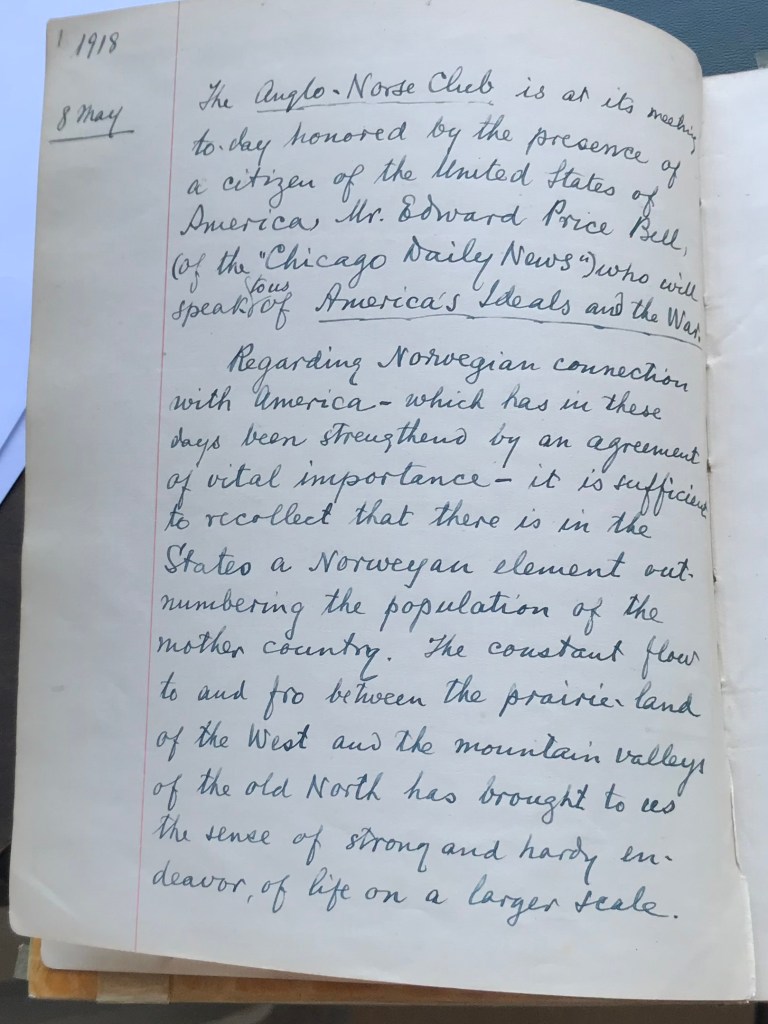 1918
8 May
The Anglo-Norse Club is at its meeting
to-day honored by the presence of
a citizen of the United States of
America, Mr. Edward Price Bell,
(of the "Chicago Daily News") who will
to us
speak of America's Ideals and the War.
Regarding Norwegian connection
with America - which has in these
days been strengthend by an agreement
of vital importance - it is sufficient
to recollect that there is in the
States a Norwegan element out-
numbering the population of the
mother country. The constant flow
to and fro between the prairie-land
of the West and the mountain valleys
of the old North has brought to us
the sense of strong and hardy en-
deavor, of life on a larger scale.